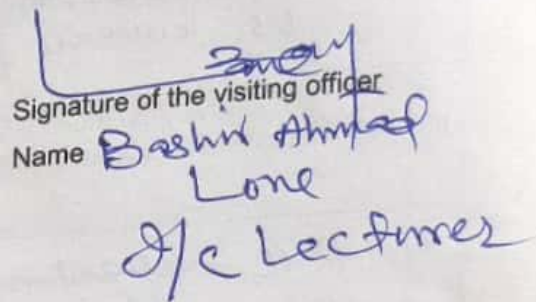 Signature of the visiting officer
Name Bashir Ahmad
Lone
I/c Lecturer